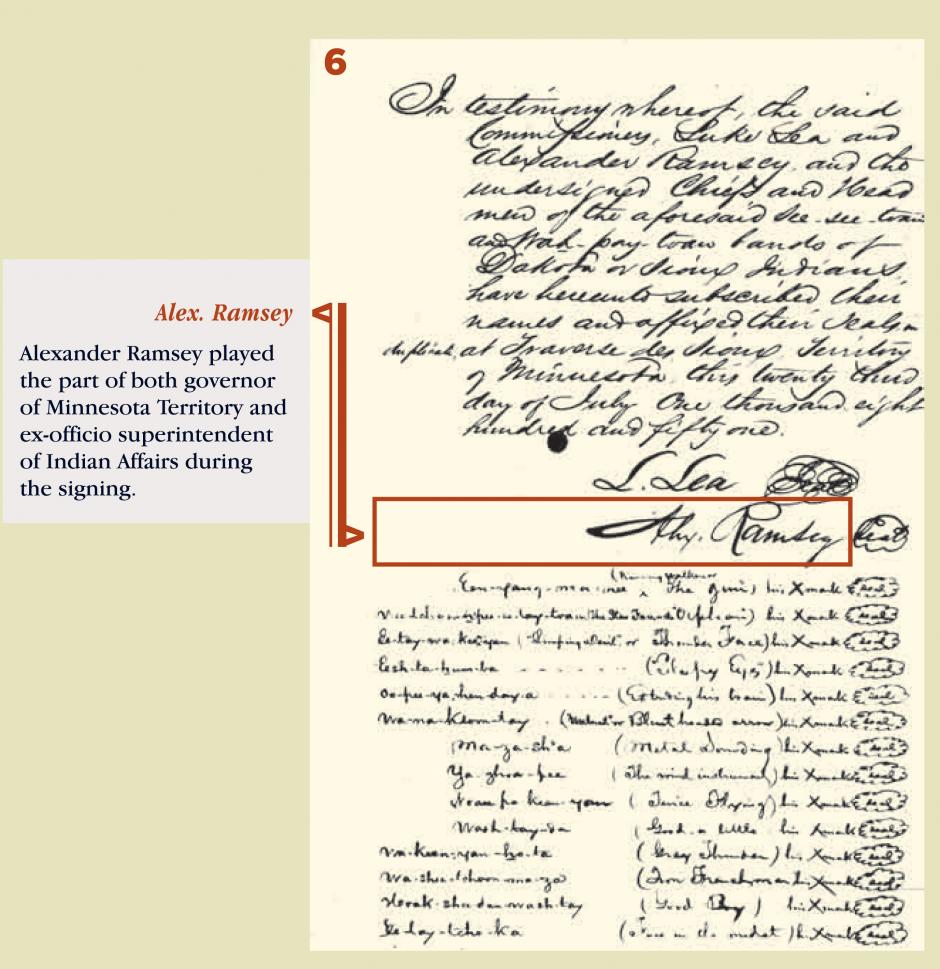 6
In testimony whereof, the said
Commissioners, Luke Lea and
Alexander Ramsey, and the
undersigned Chiefs and Head
men of the aforesaid See-see-toan
and Wah-pay-toan bands of
Dakota or Sioux Indians,
have hereunto subscribed their
names and affixed their seals in
duplicate, at Traverse des Sioux, Territory
of Minnesota, this twenty third
day of July One thousand eight
hundred and fifty one.
L. Lea Seal
Alex. Ramsey Seal
Alex. Ramsey
Alexander Ramsey played
the part of both governor
of Minnesota Territory and
ex-officio superintendent
of Indian Affairs during
the signing.
(Running Walker or The gun) his X mark Seal
(The Star Orphan) his X mark Seal
("Limping Devil" or Thunder Face) his X mark Seal
Eesh-ta-hum-ba (Sleepy Eyes) his X mark Seal
Oo-pee-ya-hen-day-a (Extending his train) his X mark Seal
(Walnut or Blunt headed arrow) his X mark Seal
Ma-za-sh'a (Metal Sounding) his X mark Seal
Ya-ghoa-pee (The wind instrument) his X mark Seal
(Twice Flying) his X mark Seal
Wash-tay-da (Good a little his X mark Seal
Wa-keen-yan-ho-ta (Gray Thunder) his X mark Seal
(Iron Frenchman his X mark Seal
Hork-shee-dan-wash-tay (Good Boy) his X mark Seal
(Face in the midst) his X mark Seal